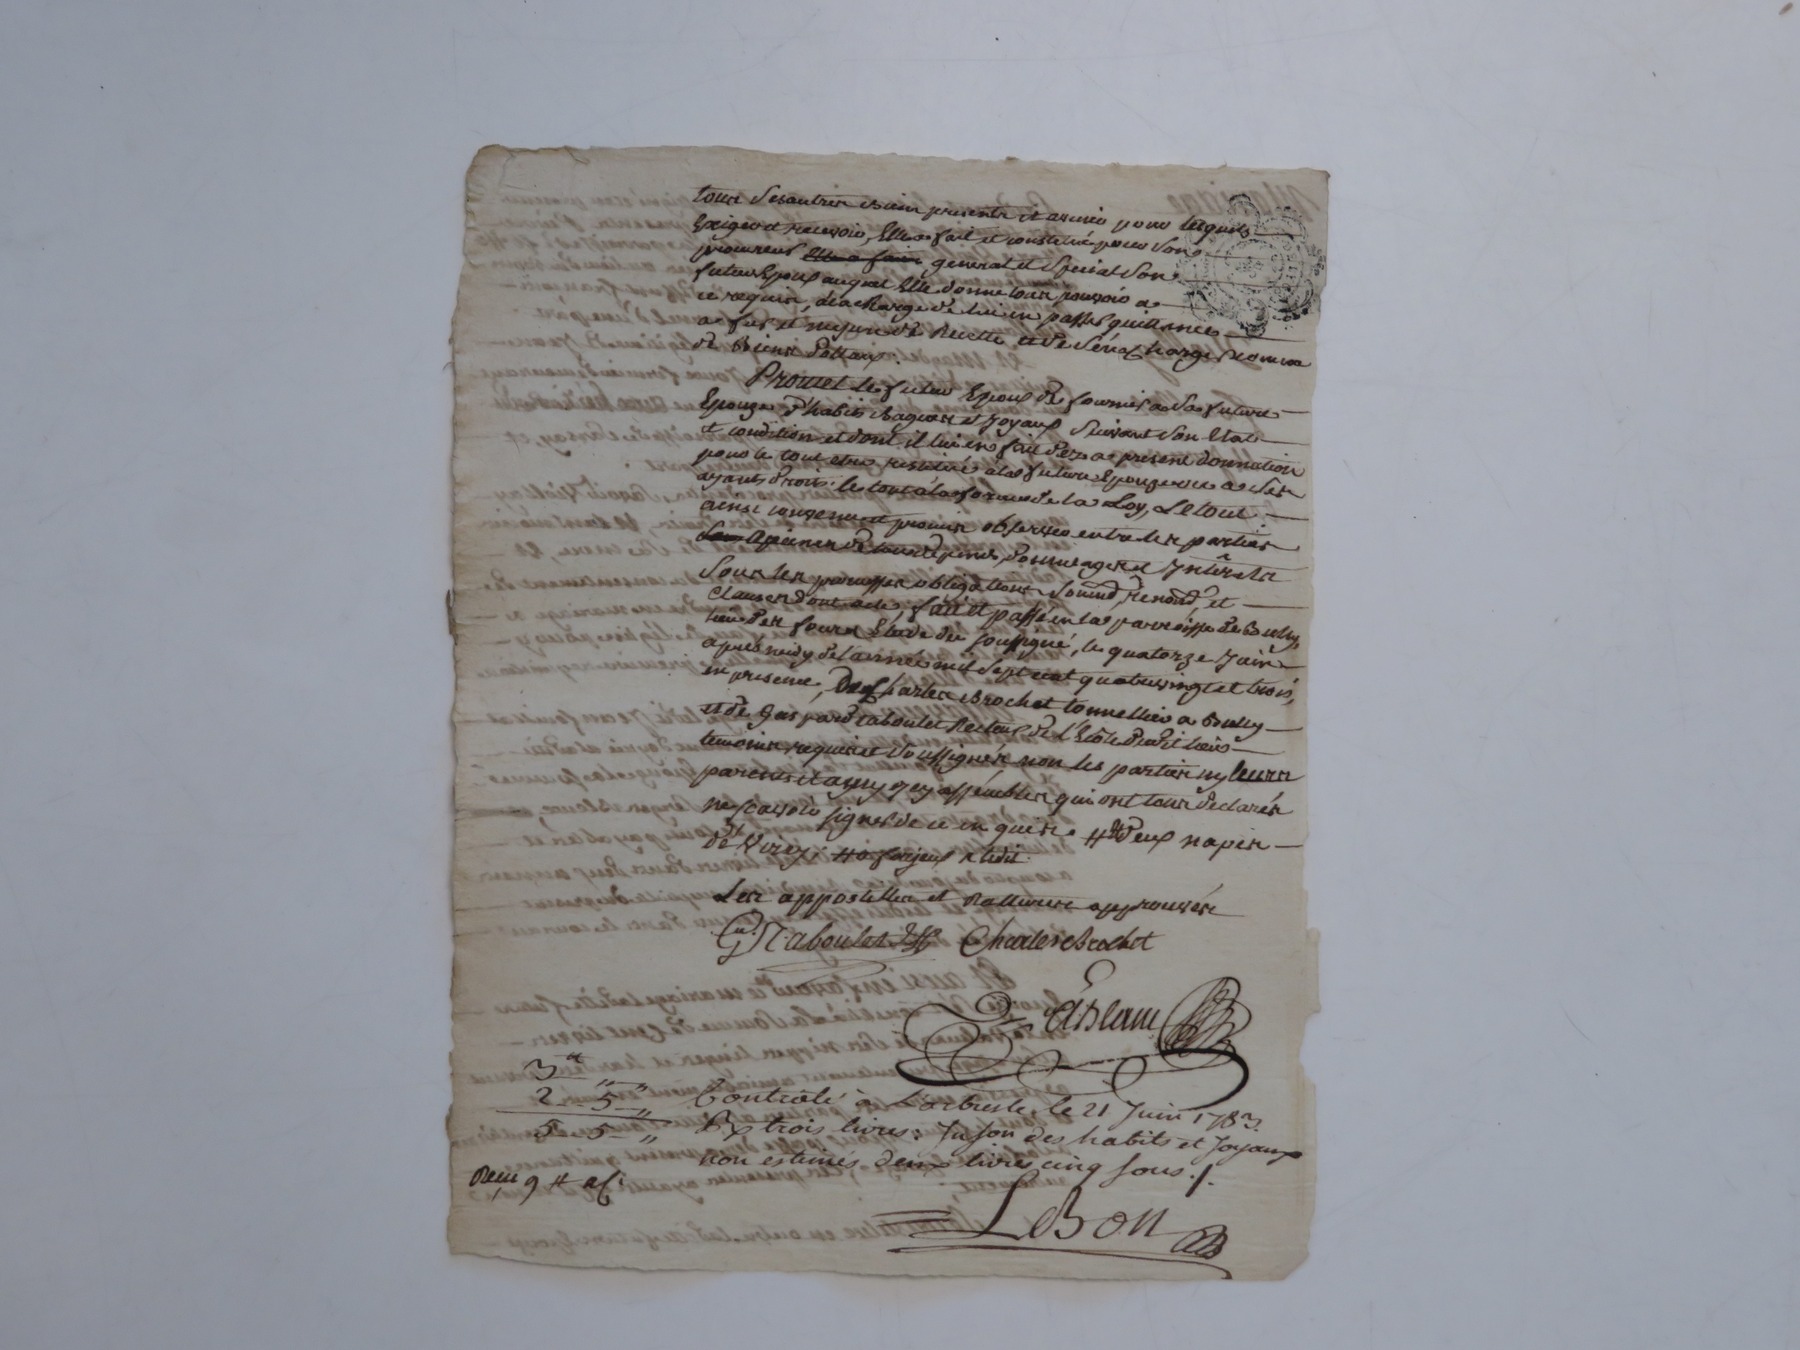 tous ses autres Biens presents et avenir pour lesquels
Exiger et recevoir, Elle a fait et constitué pour son
procureur elle a fait general et special son
futur Epoux auquel Elle donne tous pouvoir a
ce requis, a la charge de lui en passer quittance
a fur et mesure de Recette et de s'en charger comme
de Biens dottaux.
Promet le futur Epoux de fournir a sa future
Epouze d'habits Bagues et Joyaux suivant son Etat
et condition et dont il lui en fait dez a present donnation
pour le tout etre restitué a la future Epouze ou a ses
ayants droits. le tout a la forme de la Loy, Le tout
ainsi convenu et promis observer entre les parties
a peines de tous depens, dommages et Interets
sous les promesses obligations soumd, renond, et
Clauses dont acte, fait et passé en la parroisse de Bully,
lieu des fours Etude du soussigné, le quatorze Juin
apres midy de l'année mil sept cent quatre vingt et trois,
en presence, de Charles Brochet tonnellier a Bully
et de Gaspard taboulet Recteur de l'Ecole dudit lieu
temoins requis et soussignés non les parties ny leurs
parents et amy icy assemblés qui ont tous declarés
ne scavoir signer de ce enquis. deux napes

Les appostilles et Rattures approuvés
G. Taboulet Charles Brochet

3 ₶
2 " 5 " Controlé à L'arbresle le 21 Juin 1783.
5 " 5 " Rx trois livres, Inson des habits et Joyaux
non estimés deux livres cinq sous ./.
Reçu 9 ₶
LeBon